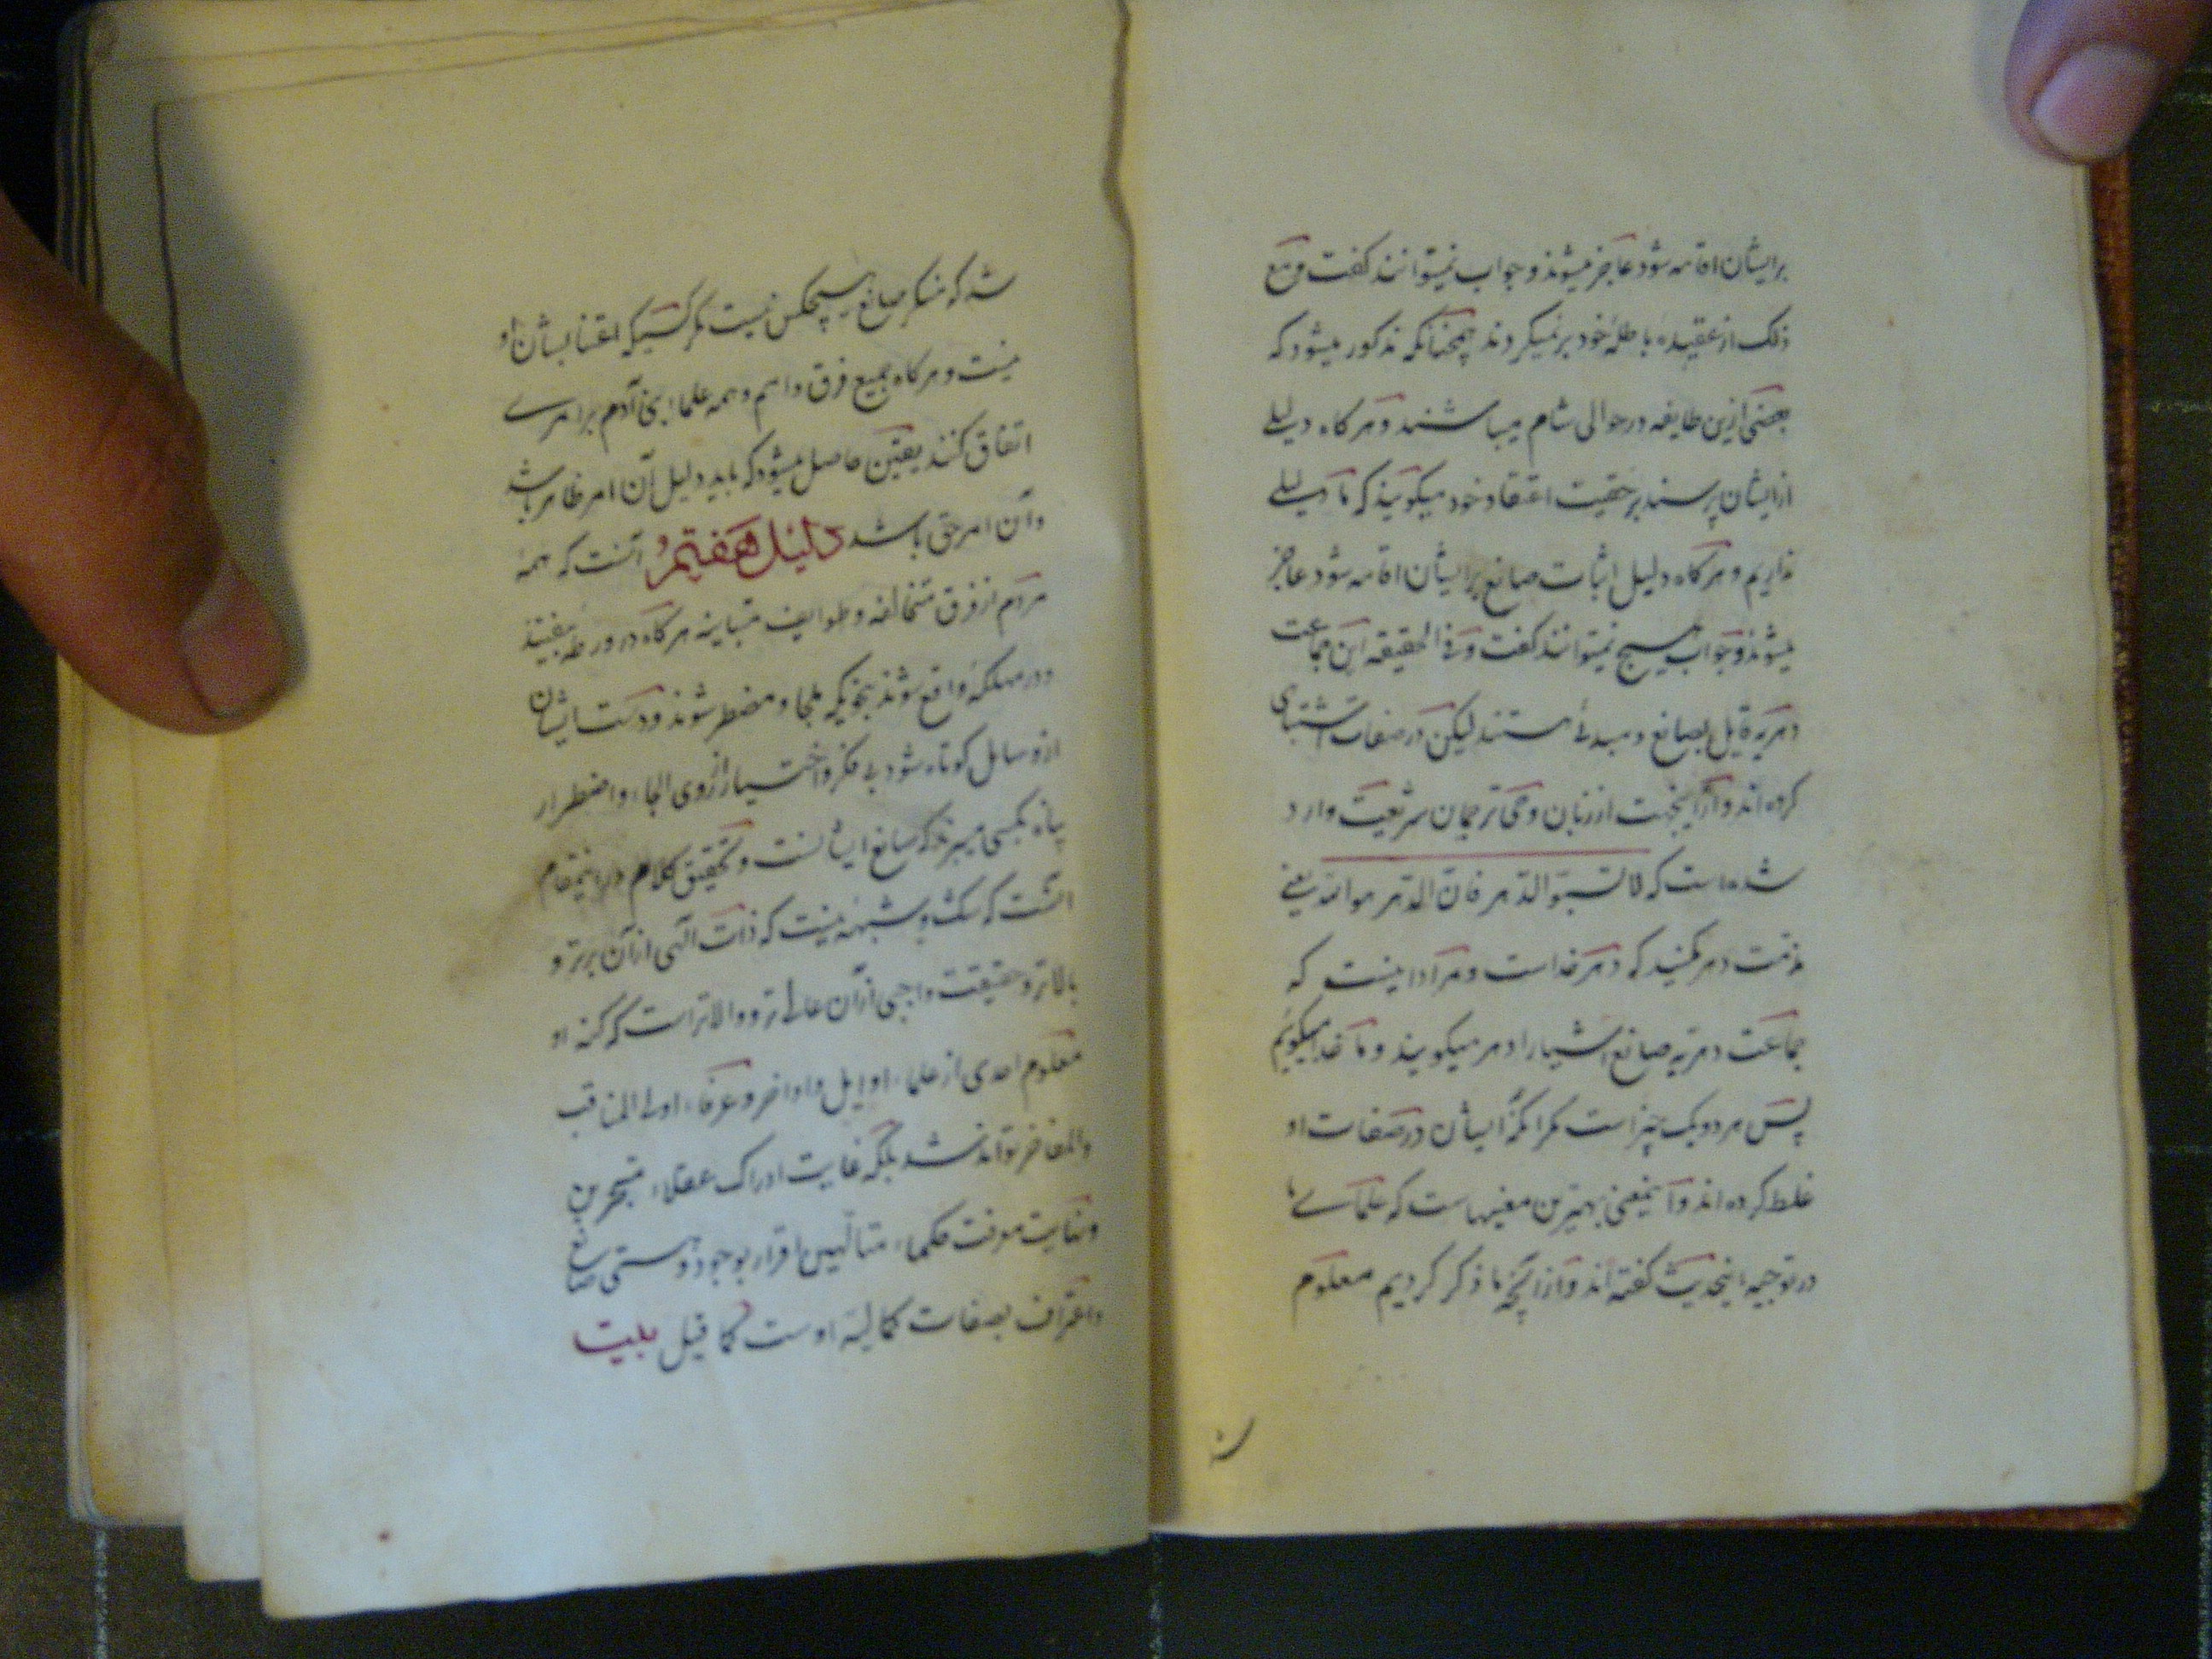 برایشان اقامه شود عاجز میشوند و جواب نمیتوانند گفت و مع
ذلک از عقیدهٔ باطلهٔ خود بر نمیکردند چنانکه مذکور میشود که
بعضی ازین طایفه در حوالی شام میباشند و هر کاه دلیلی
از ایشان پرسند بر حقیت اعتقاد خود میکویند که ما دلیلے
نداریم و هر کاه دلیل اثبات صانع برایشان اقامه شود عاجز
میشوند و جواب هیچ نمیتوانند گفت و فی الحقیقه این جماعت
دهریه قایل بصانع و مبدئی هستند لیکن در صفات اشتباهی
کرده اند و ازاینجهت از زبان وحی ترجمان شریعت وارد
شده است که لا تسبّوا الدّهر فان الدّهر هو الله یعنی
مذمت دهر مکنید که دهر خداست و مراد اینست که
جماعت دهریه صانع اشیارا دهر میکویند و ما خدا میکوییم
پس هر دو یک چیز است مکر انکه ایشان در صفات او
غلط کرده اند و اینمعنی بهترین معنیهاست که علمای ما
در توجیه اینحدیث گفته اند و از انچه ما ذکر کردیم معلوم
شد
شد که منکر صانع هیچکس نیست مکر کسیکه اعتنا بشان او
نیست و هر کاه جمیع فرق و امم و همه علماء بنی آدم بر امرے
اتفاق کنند یقین حاصل میشود که باید دلیل آن امر ظاهر باشد
و آن امر حق باشد دلیل هفتم آنست که همه
مردم از فرق متخالفه و طوایف متباینه هر کاه در ورطه بیفتند
و در مهلکهٔ واقع شوند بنحویکه ملجا و مضطر شوند و دست ایشان
از وسایل کوتاه شود بی فکر و اختیار از روی الجاء و اضطرار
پناه بکسی میبرند که صانع ایشانست و تحقیق کلام در اینمقام
انست که شک و شبهه نیست که ذات الهی از آن برتر و
بالاتر و حقیقت واجبی از آن عالی تر و والاتر است که کنه او
معلوم احدی از علماء اوایل و اواخر و عرفاء اولی المناقب
والمفاخر تواند شد بلکه غایت ادراک عقلاء متبحرین
و نهایت معرفت حکماء متالّهین اقرار بوجود و هستی صانع
و اعتراف بصفات کمالیّه اوست کما قیل بیت